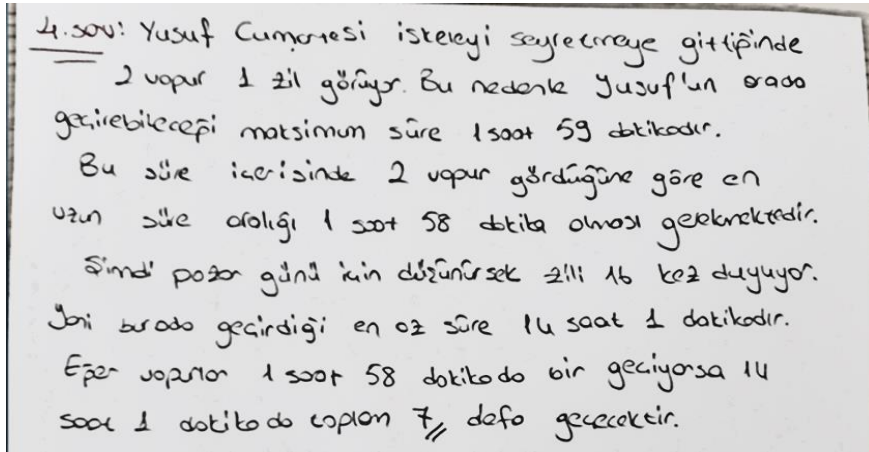 4. soru: Yusuf Cumartesi iskeleyi seyretmeye gittiğinde
2 vapur 1 zil görüyor. Bu nedenle Yusuf'un orada
geçirebileceği maksimum süre 1 saat 59 dakikadır.
Bu süre içerisinde 2 vapur gördüğüne göre en
uzun süre aralığı 1 saat 58 dakika olması gerekmektedir.
Şimdi pazar günü için düşünürsek zili 16 kez duyuyor.
Yani burada geçirdiği en az süre 14 saat 1 dakikadır.
Eğer vapurlar 1 saat 58 dakikada bir geçiyorsa 14
saat 1 dakikada toplam 7 defa geçecektir.